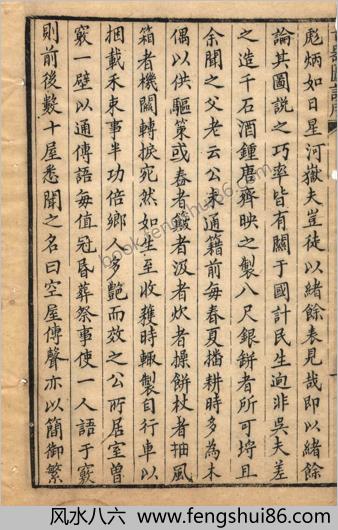 彪炳如日星河嶽夫豈徒以緒餘表見哉即以緒餘
論其圖說之巧率皆有關于國計民生逈非吳夫差
之造千石酒鍾唐齊映之製八尺銀缾者所可埒且
余聞之父老云公未通籍前每春夏播耕時多為木
偶以供驅策或舂者簸者汲者炊者操餅杖者抽風
箱者機關轉捩宛然如生至收穫時輒製自行車以
捆載禾束事半功倍鄉人多艷而效之公所居室曾
竅一壁以通傳語每值冠昏葬祭事使一人語于竅
則前後數十屋悉聞之名曰空屋傳聲亦以簡御繁
book.fengshui86.com
风水八六 www.fengshui86.com